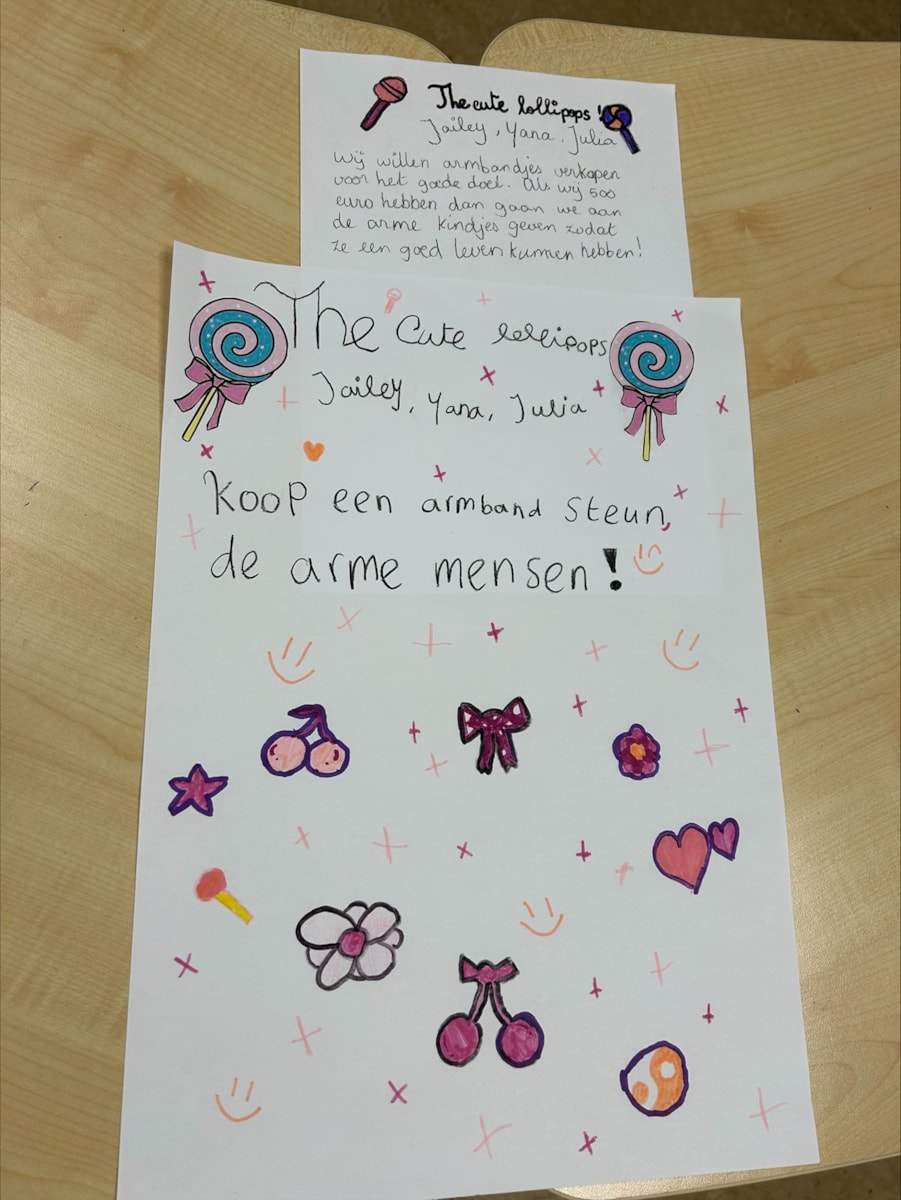 The cute lollipops!
Jailey, Yana, Julia
Wij willen armbandjes verkopen
voor het goede doel. Als wij 500
euro hebben dan gaan we aan
de arme kindjes geven zodat
ze een goed leven kunnen hebben!
The Cute lollipops
Jailey, Yana, Julia
Koop een armband steun,
de arme mensen!